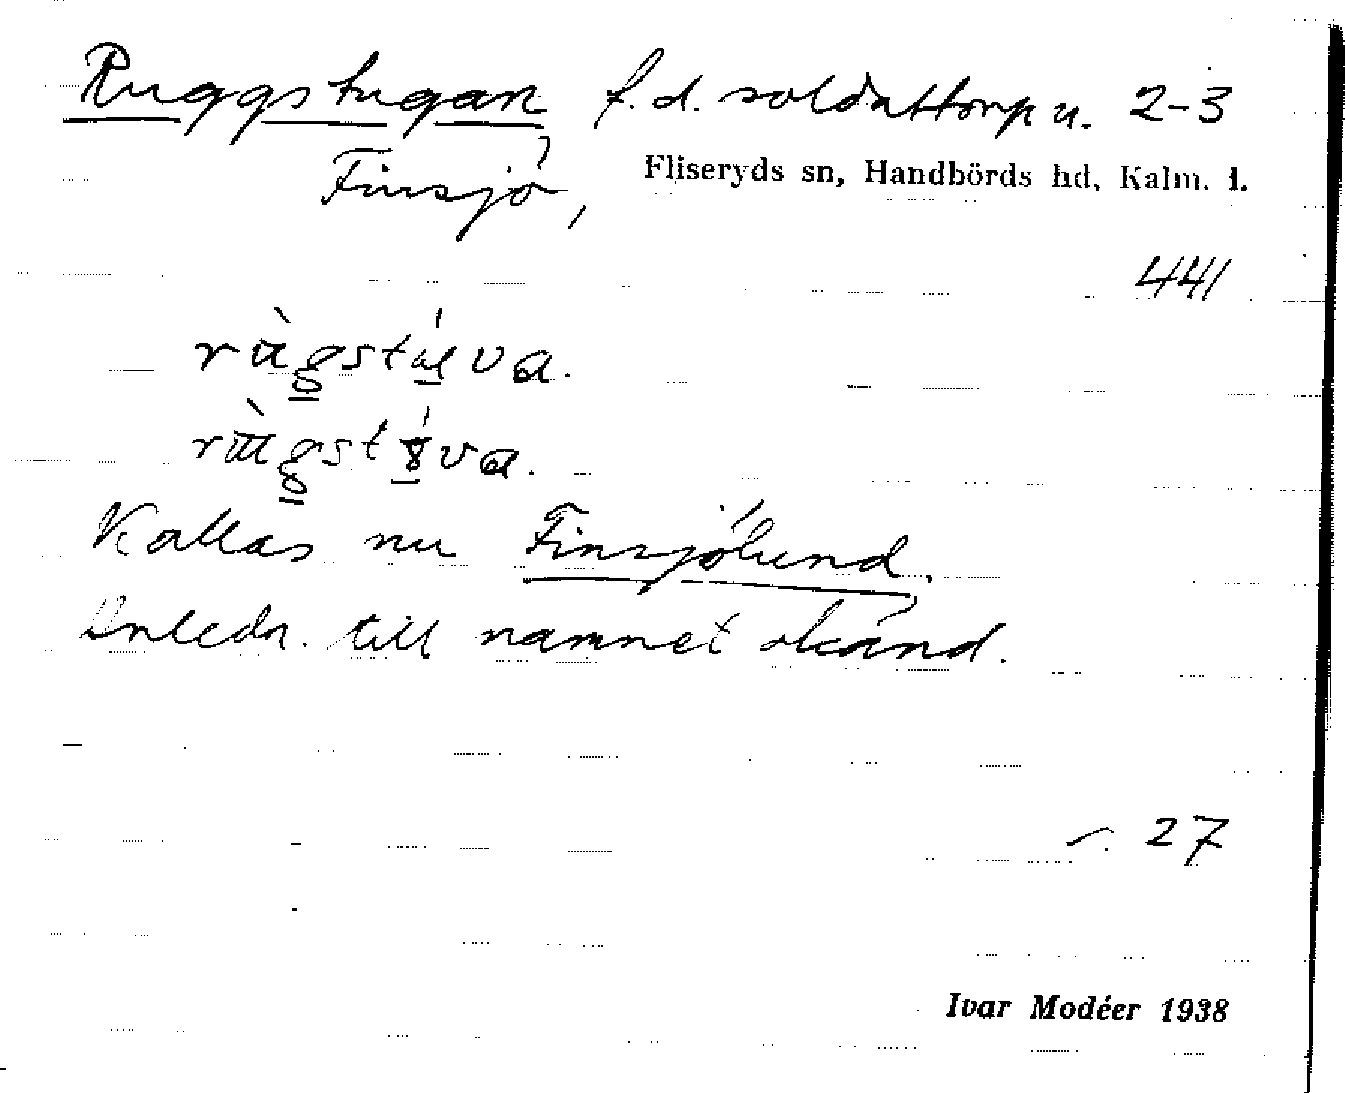 Ruggstugan f.d. soldattorp u. 2-3
Finsjö, Fliseryds sn, Handbörds hd, Kalm. l.
441
Kallas nu Finsjölund.
Anledn. till namnet okänd.
27
Ivar Modéer 1938